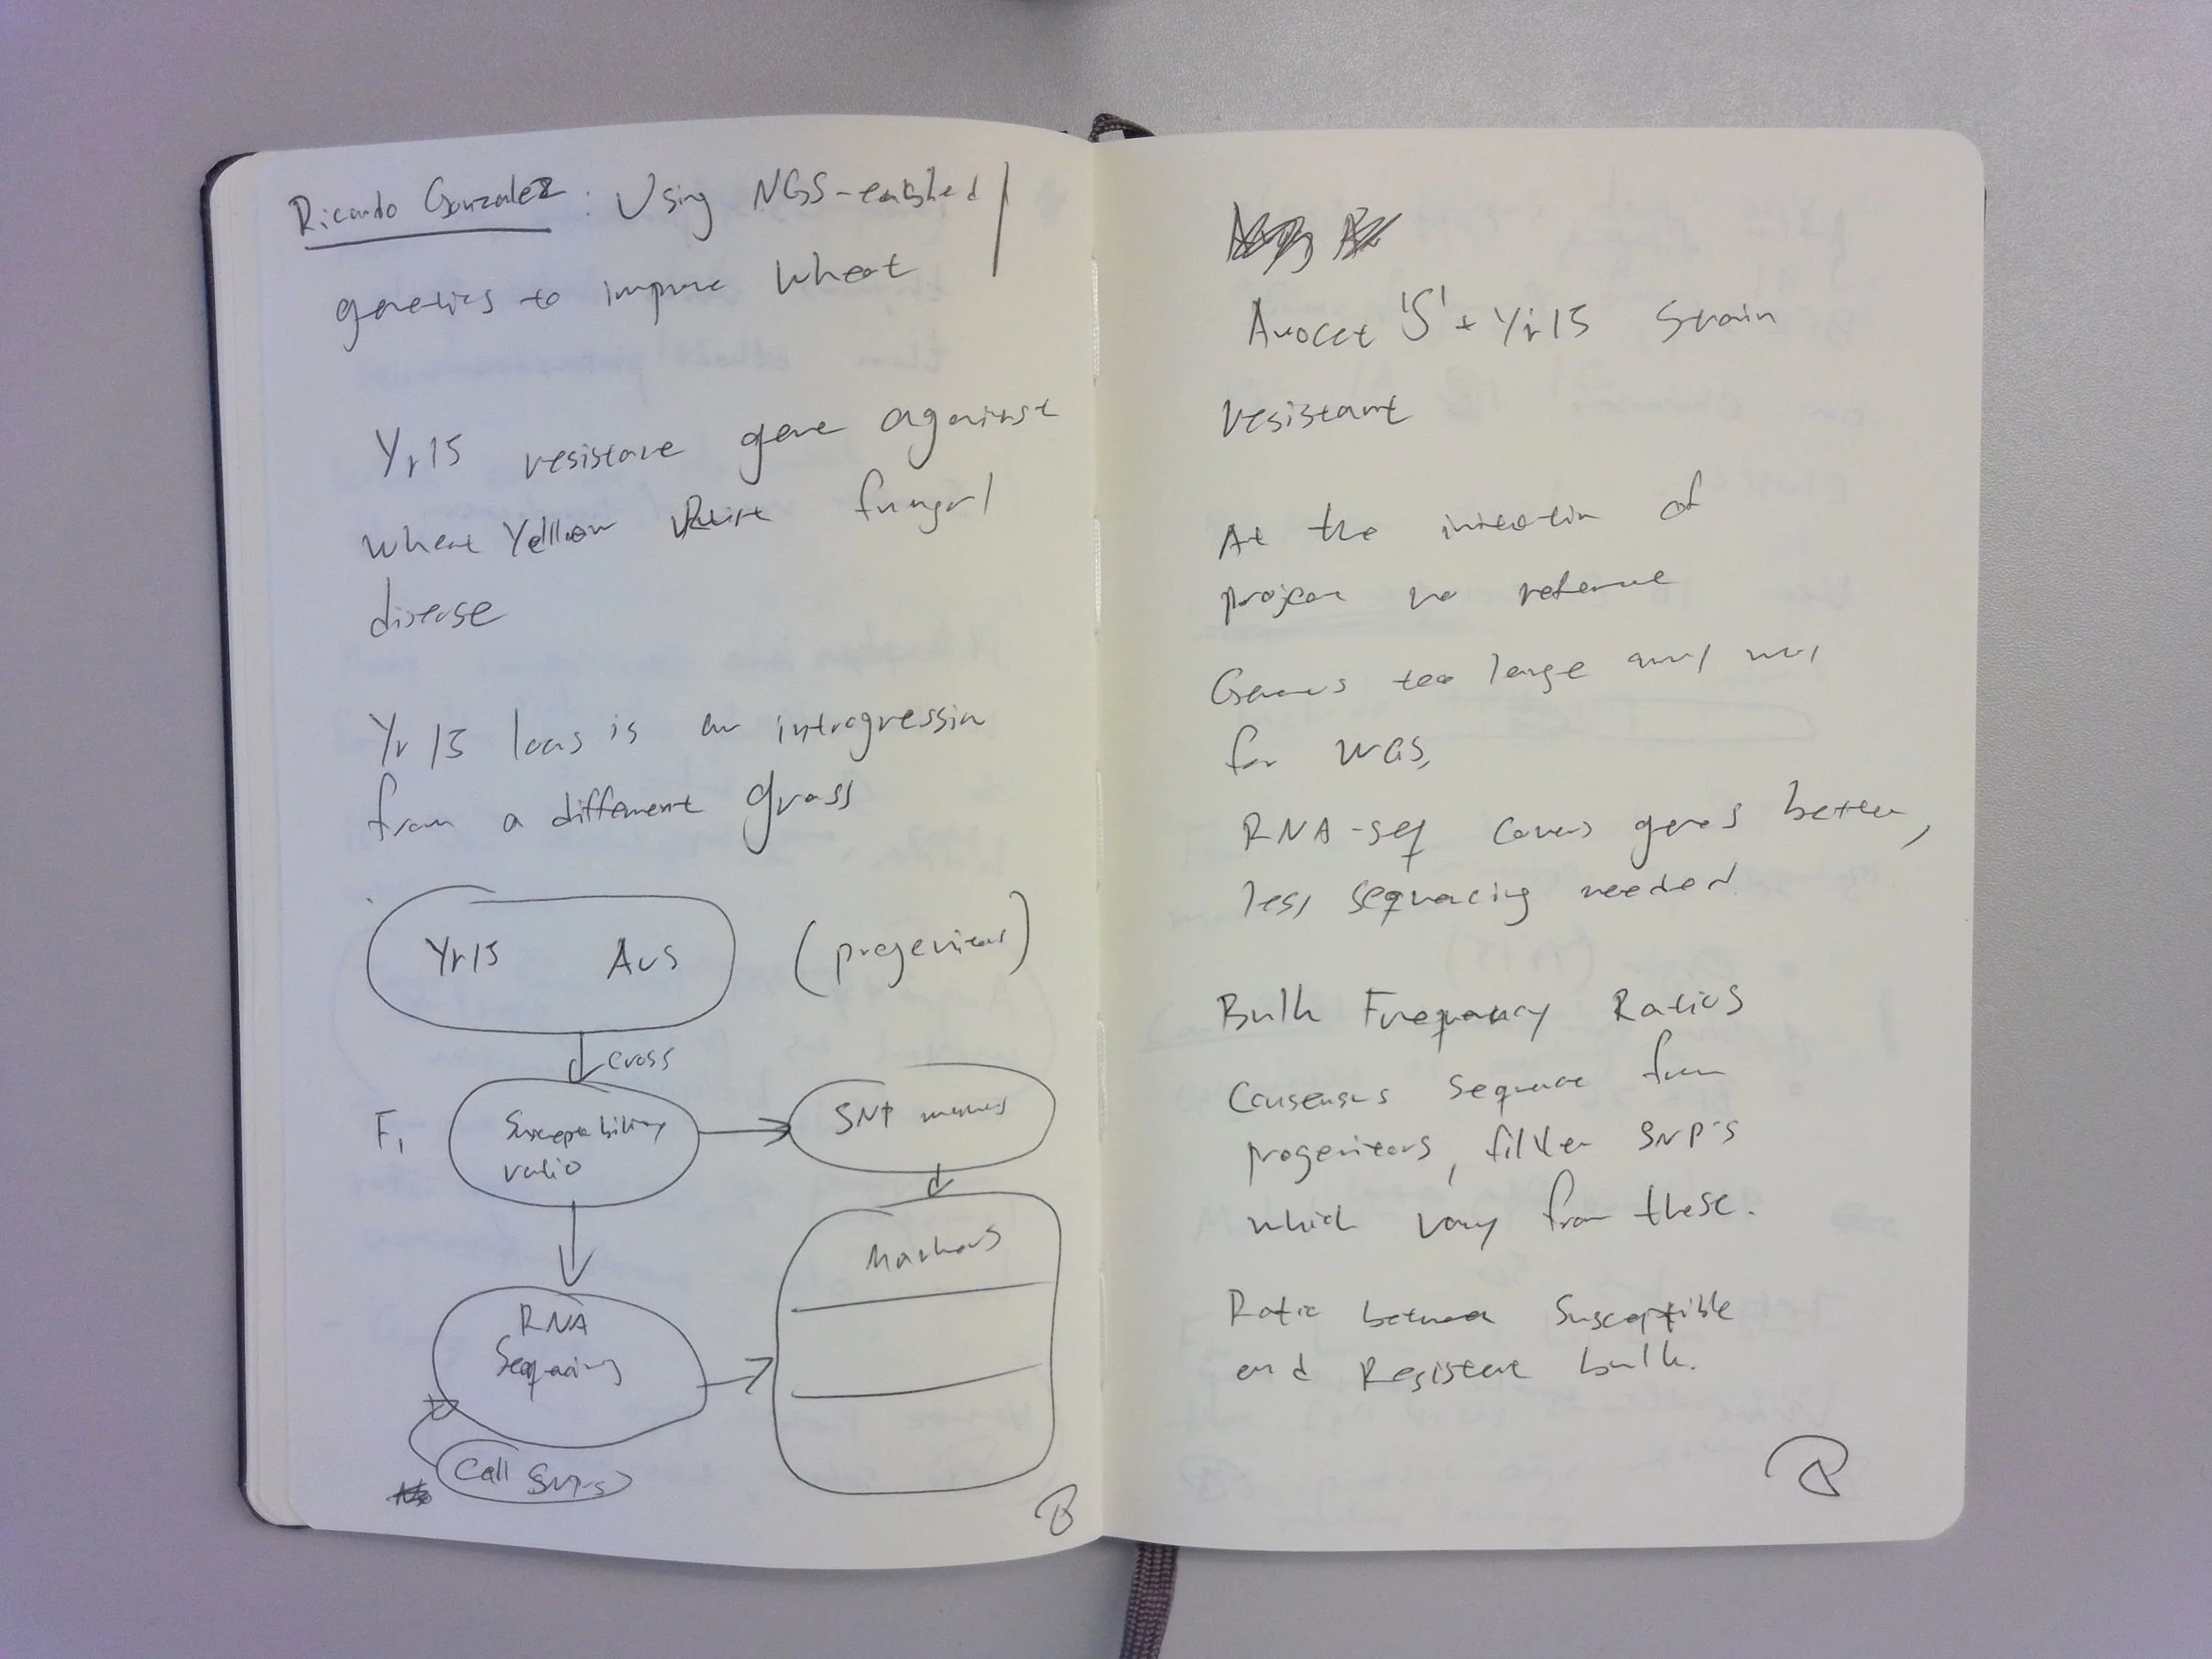 Ricardo Gonzalez: Using NGS-enabled
genetics to improve wheat
Yr15 resistance gene against
wheat Yellow Rust fungal
disease
Yr15 locus is an introgression
from a different grass
Yr15 AvS (progenitors)
cross
F1
Susceptibility
ratio
SNP
Markers
RNA
Sequencing
Call SNPs
Avocet 'S' + Yr15 Strain
resistant
At the initiation of
project no reference
too large
for WGS,
RNA-seq covers genes better,
less sequencing needed
Bulk Frequency Ratios
Consensus sequence from
progenitors, filter SNP's
which vary from these.
Ratio between Susceptible
and Resistant bulk.